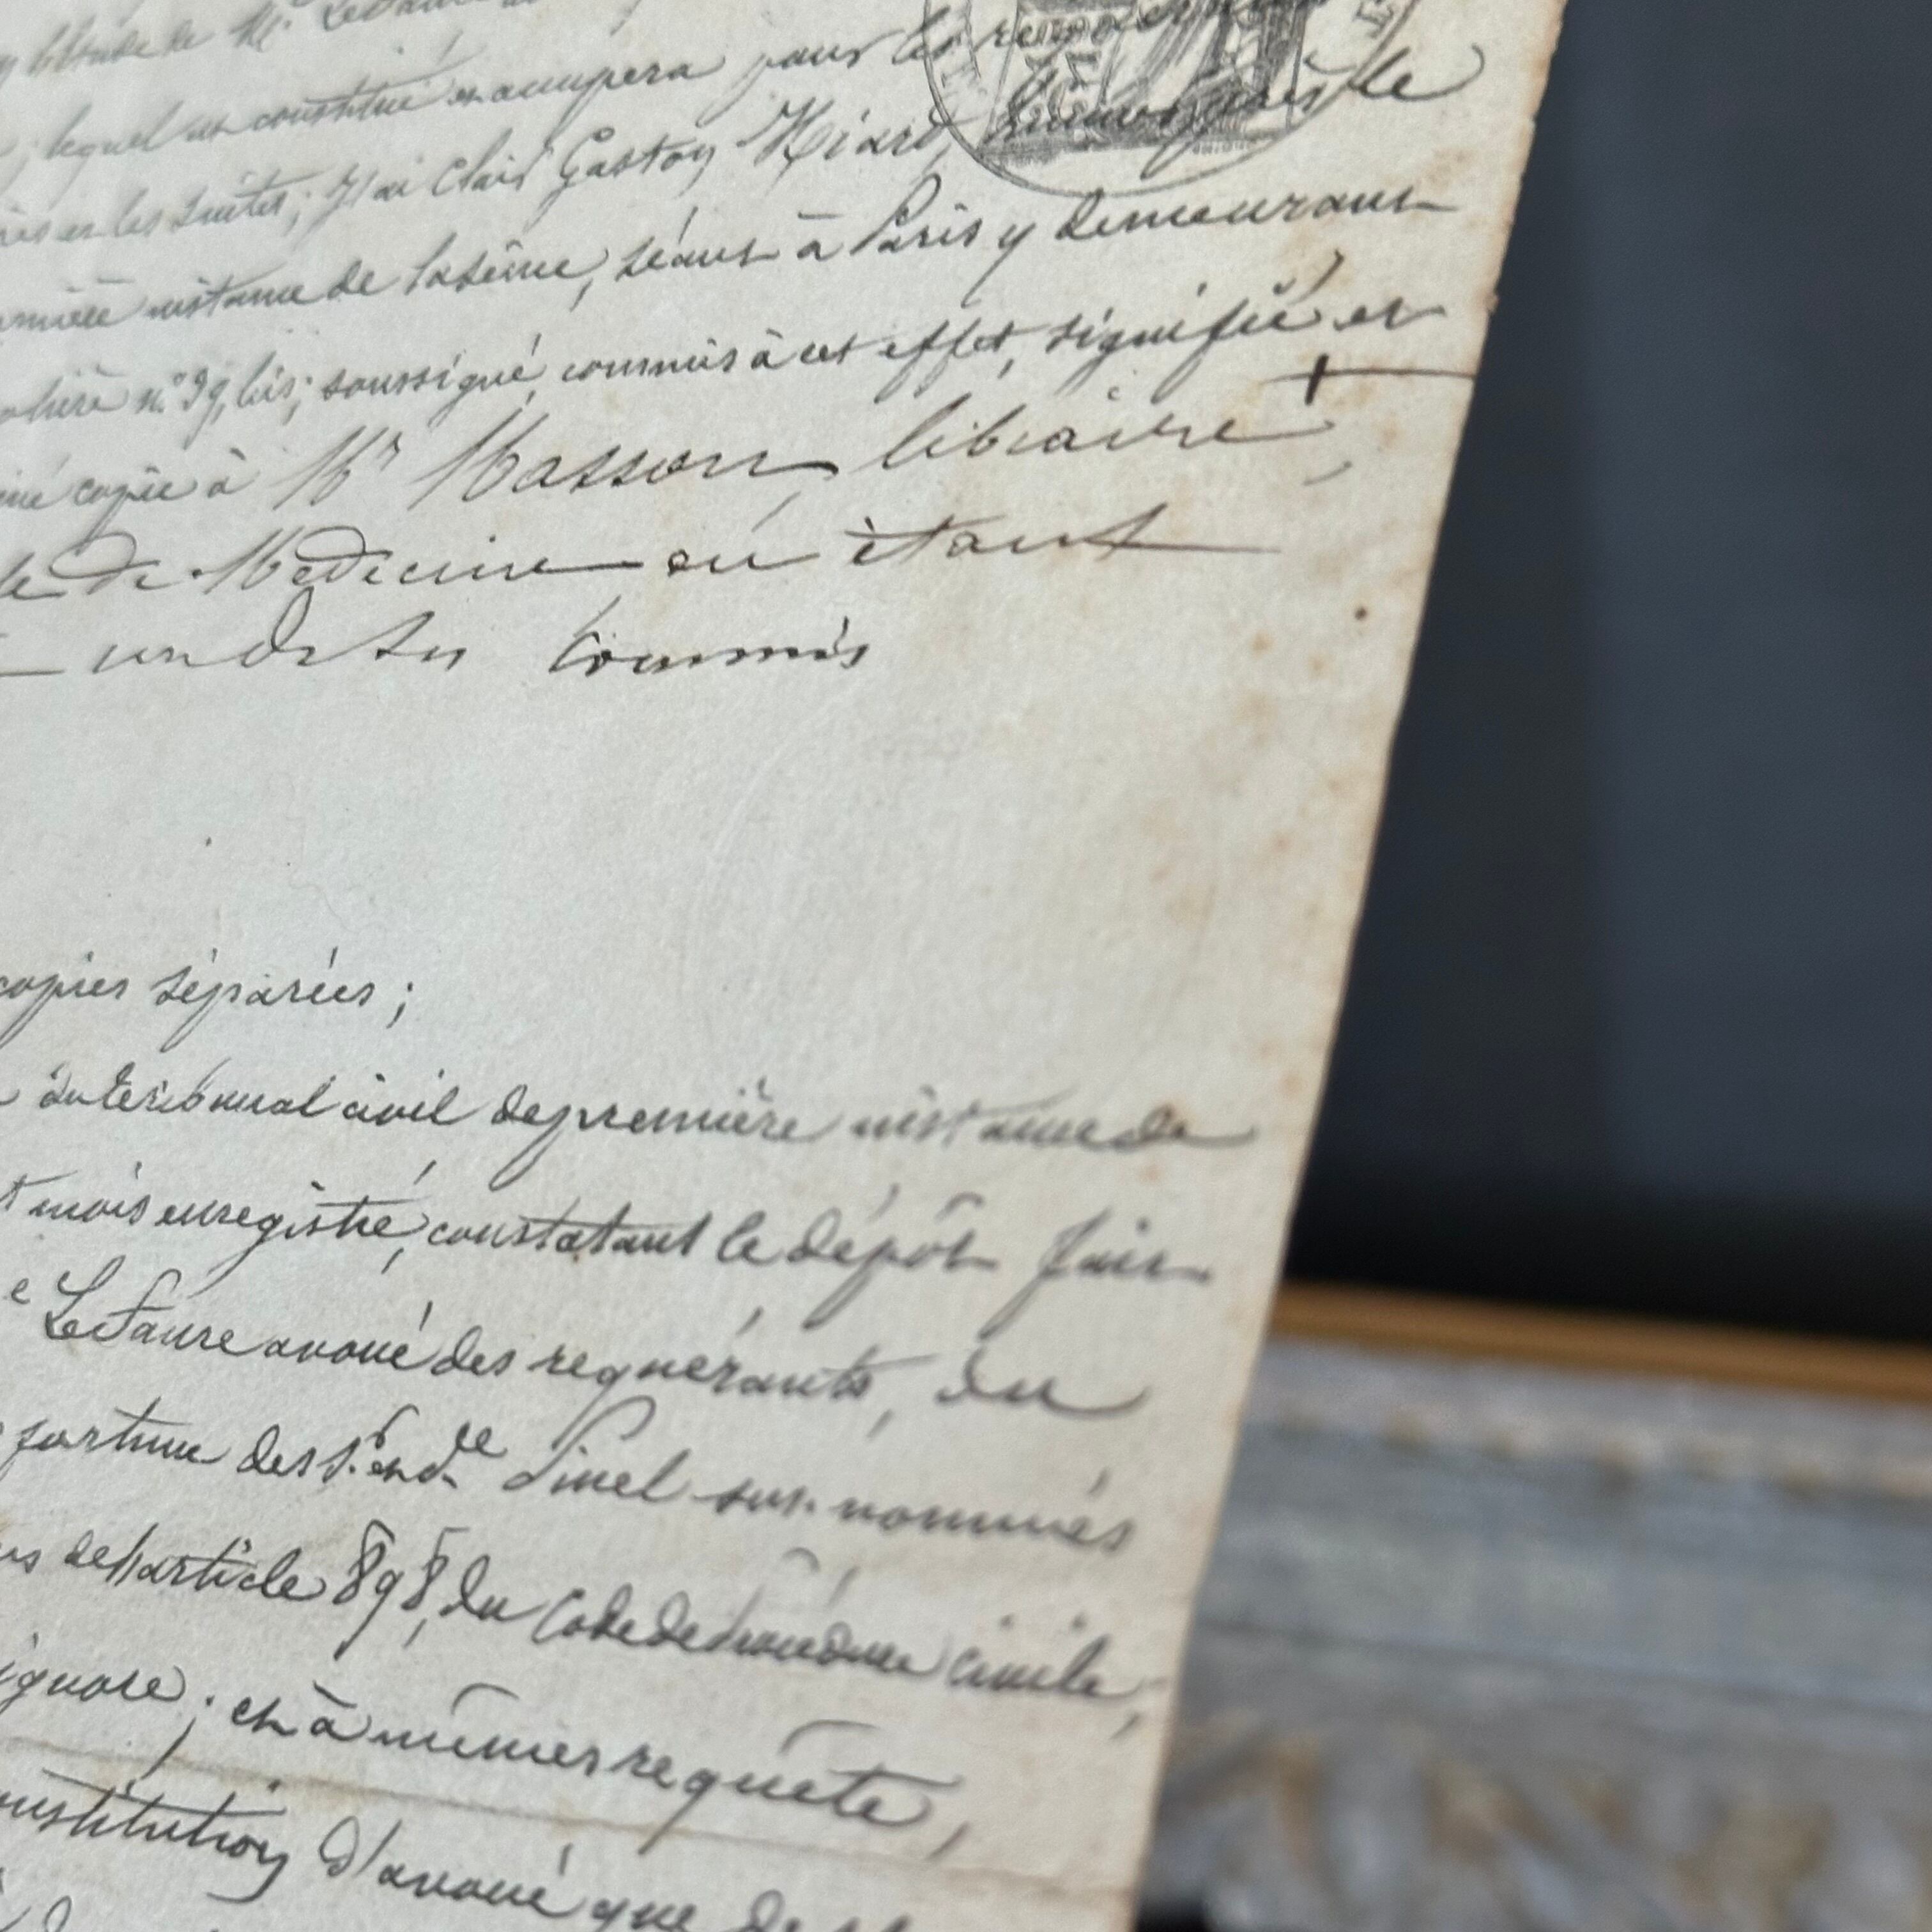 lequel est constitué et occupera pour les
et les suites; J'ai Clair Gaston Hiard,
instance de la Seine, séant à Paris y demeurant
n.° 39 bis; soussigné, commis à cet effet, signifié et
copie à Mr Masson, libraire,
de Médecine, en étant
un de ses commis
copies séparées;
du tribunal civil de première instance de
mois enregistré, constatant le dépôt fait
e LeFaure avoué des requérants, du
fortune des Sr. et de Pinel sus-nommés
de l'article 898, du Code de Procédure civile,
ignore; et à mêmes requête,
constitution d'avoué que de